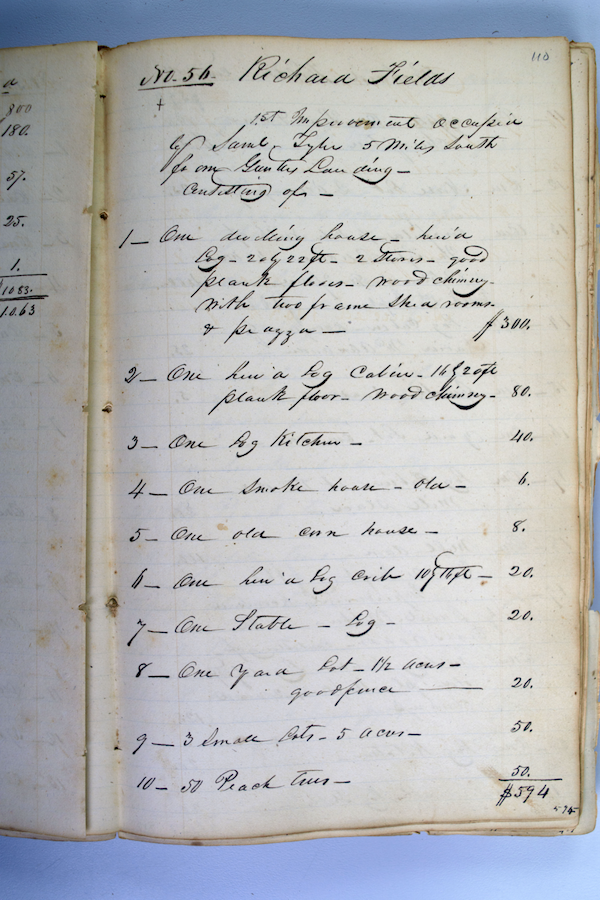 a
300
180.
57.
25.
1.
1083.
1063
110
No. 56. Richard Fields
+
1st Improvement occupied
by Saml. Tyler 5 Miles South
from Gunters Landing -
Consisting of -
1 - One dwelling house - hew'd
Log - 20 by 22ft - 2 Stories - good
plank floors - wood chimney -
with two frame shed rooms
& piazza - $300.
2 - One hew'd Log Cabin - 16 by 20ft
plank floor - wood chimney - 80.
3 - One Log Kitchen - 40.
4 - One Smoke house - old - 6.
5 - One old corn house - 8.
6 - One hew'd Log Crib 10 by 16ft - 20.
7 - One Stable - Log - 20.
8 - One Yard Lot - 1 1/2 acres -
good fence - 20.
9 - 3 Small Lots - 5 acres - 50.
10 - 50 Peach trees - 50.
$594